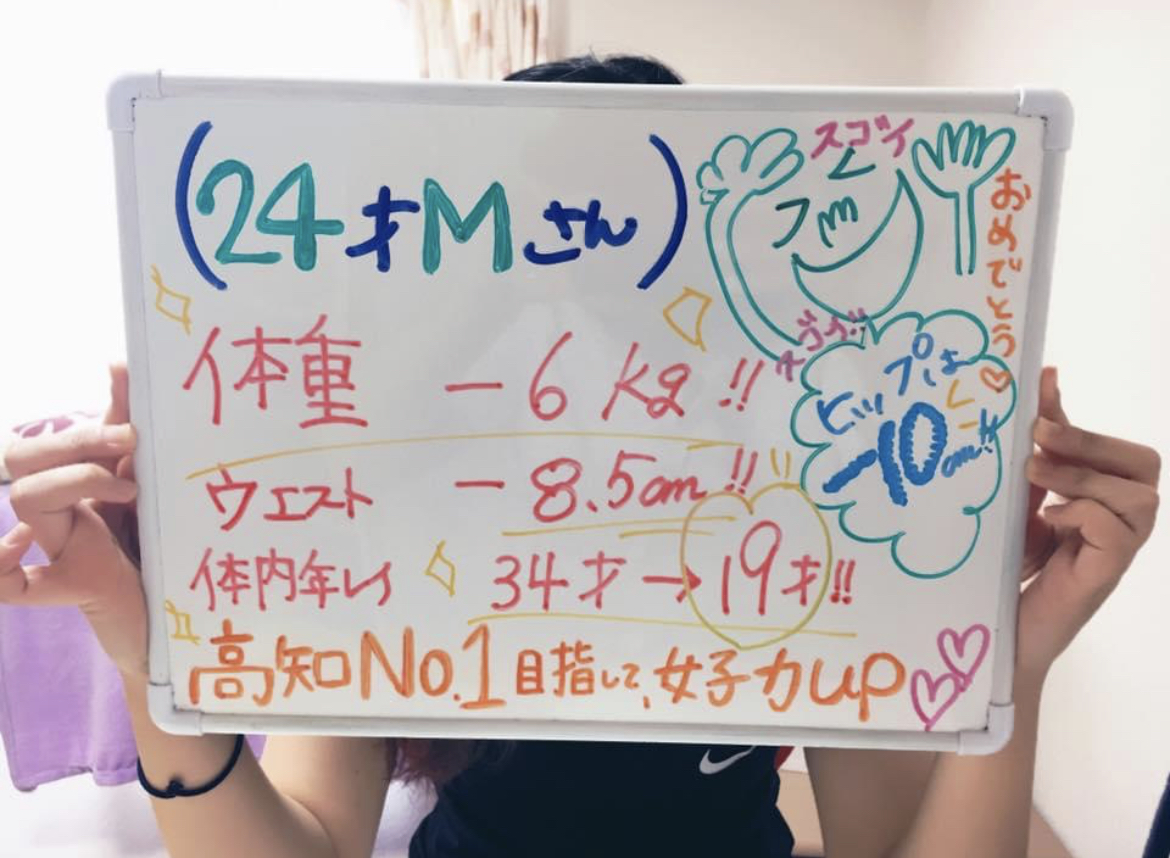 (24才Mさん)
スゴイ
おめでとう♡
体重 -6kg!!
スゴイ!!
ヒップは
-10cm!!
ウエスト -8.5cm!!
体内年レイ 34才→19才!!
高知No.1目指して、女子力up